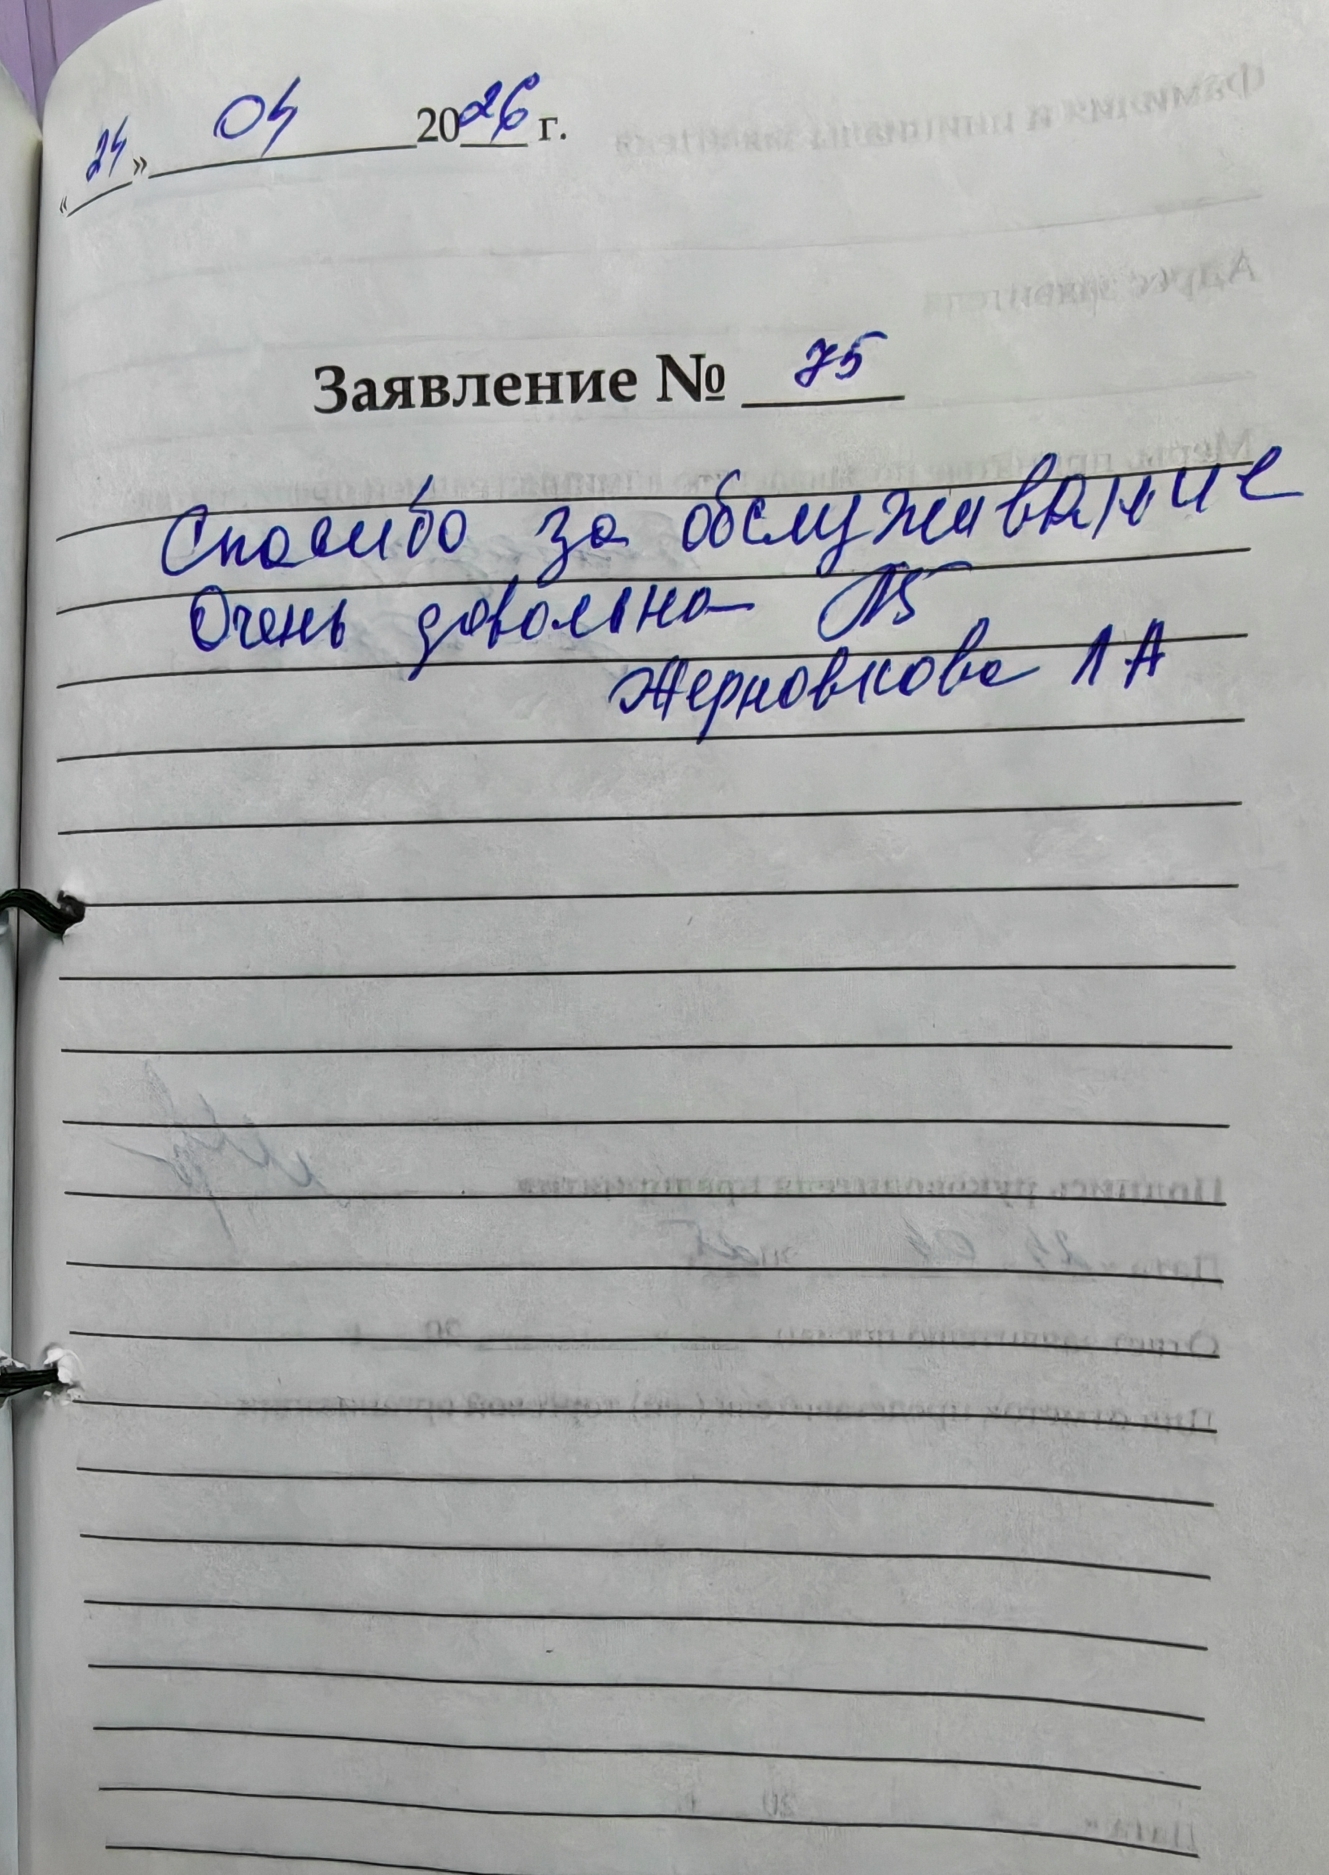 «24» 04 2026 г.
Заявление № 75
Спасибо за обслуживание
Очень довольна
Жерновкова Л А